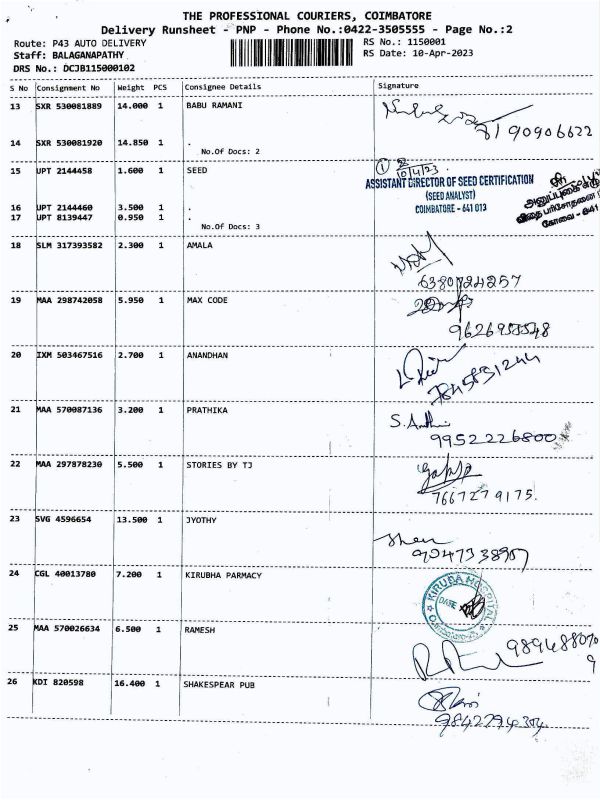 THE PROFESSIONAL COURIERS, COIMBATORE
Delivery Runsheet - PNP - Phone No.:0422-3505555 - Page No.:2
Route: P43 AUTO DELIVERY RS No.: 1150001
Staff: BALAGANAPATHY RS Date: 10-Apr-2023
DRS No.: DCJB115000102
S No Consignment No Weight PCS Consignee Details Signature
13 SXR 530081889 14.000 1 BABU RAMANI
81 90906622
14 SXR 530081920 14.850 1 .
No.Of Docs: 2
15 UPT 2144458 1.600 1 SEED
ASSISTANT DIRECTOR OF SEED CERTIFICATION
(SEED ANALYST)
COIMBATORE - 641 013
16 UPT 2144460 3.500 1 .
17 UPT 8139447 0.950 1 .
No.Of Docs: 3
18 SLM 317393582 2.300 1 AMALA
6380724257
19 MAA 298742058 5.950 1 MAX CODE
20 IXM 503467516 2.700 1 ANANDHAN
7845831244
21 MAA 570087136 3.200 1 PRATHIKA
9952226800
22 MAA 297878230 5.500 1 STORIES BY TJ
7667279175.
23 SVG 4596654 13.500 1 JYOTHY
24 CGL 40013780 7.200 1 KIRUBHA PARMACY
KIRUBA HOSPITAL
DATE
25 MAA 570026634 6.500 1 RAMESH
26 KDI 820598 16.400 1 SHAKESPEAR PUB
9842794304